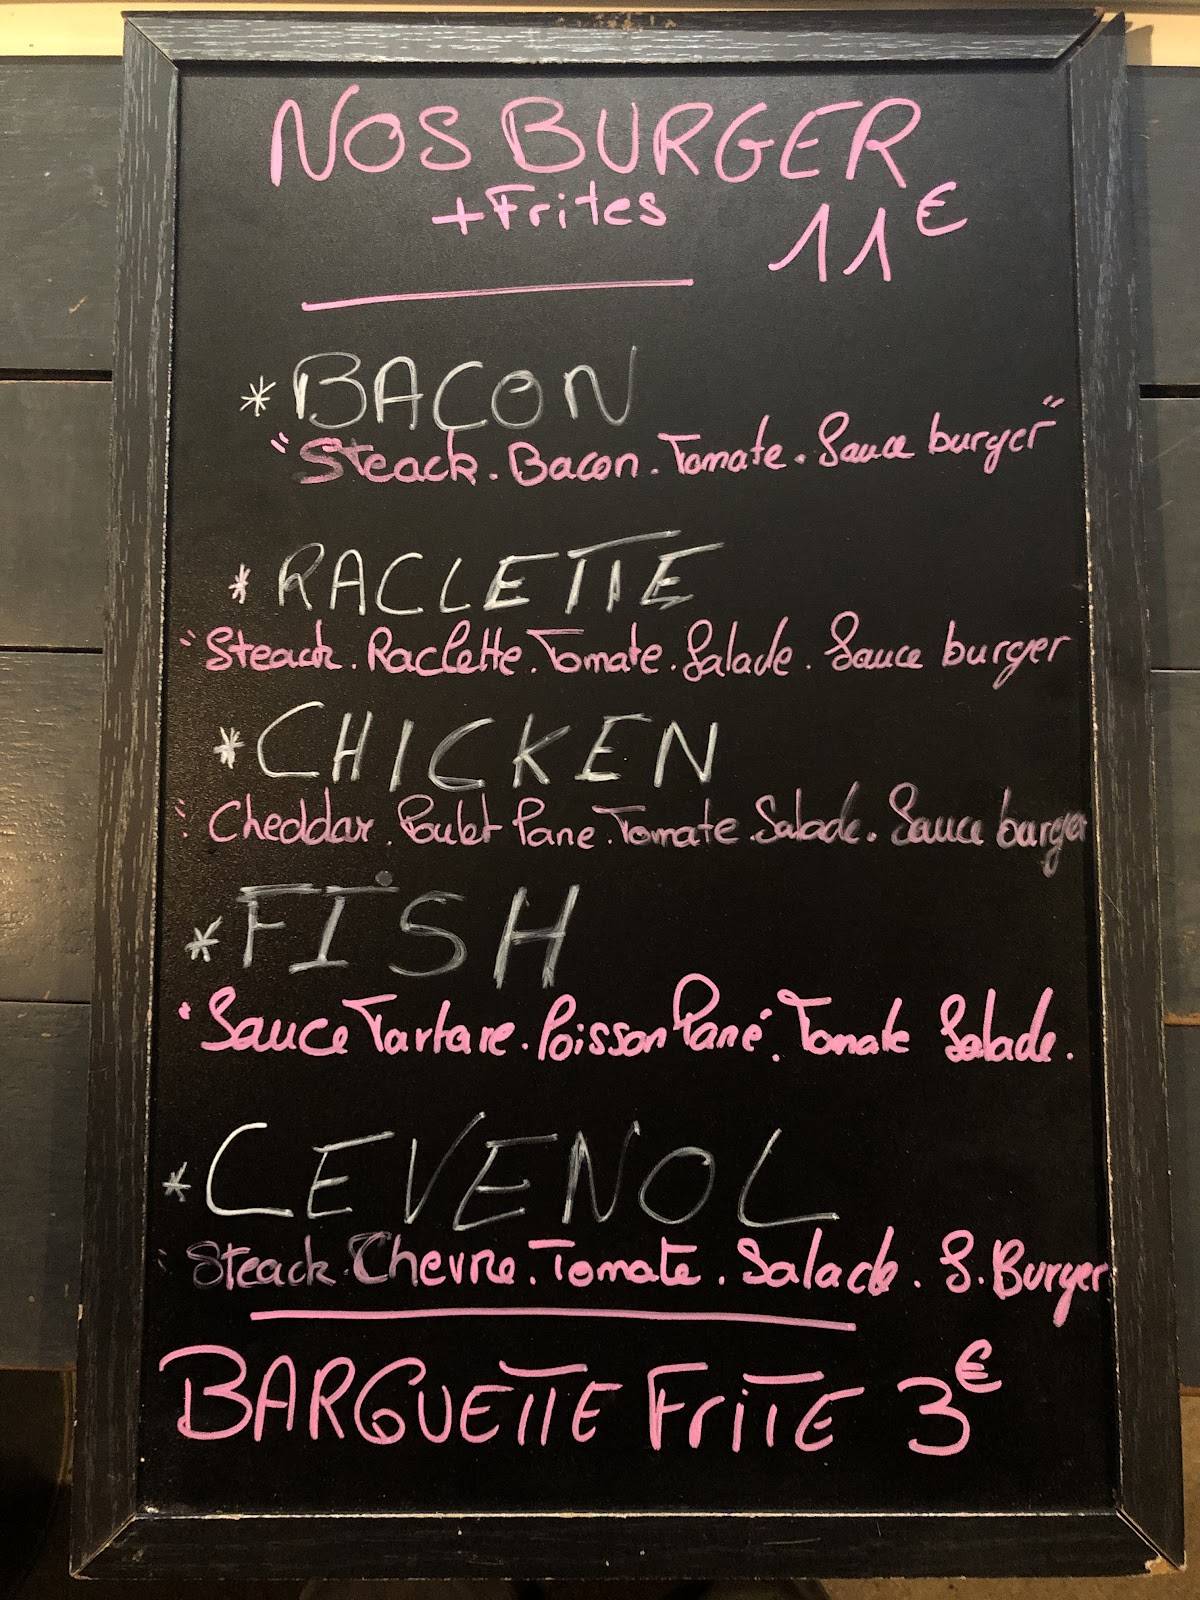 NOS BURGER
+ Frites 11€
* BACON
"Steack. Bacon. Tomate. Sauce burger"
* RACLETTE
"Steack. Raclette. Tomate. Salade. Sauce burger
* CHICKEN
" Cheddar. Poulet Pane. Tomate. Salade. Sauce burger
* FISH
" Sauce Tartare. Poisson Pané. Tomate Salade.
* CEVENOL
" Steack. Chevre. Tomate. Salade. S. Burger
BARGUETTE FriTE 3€